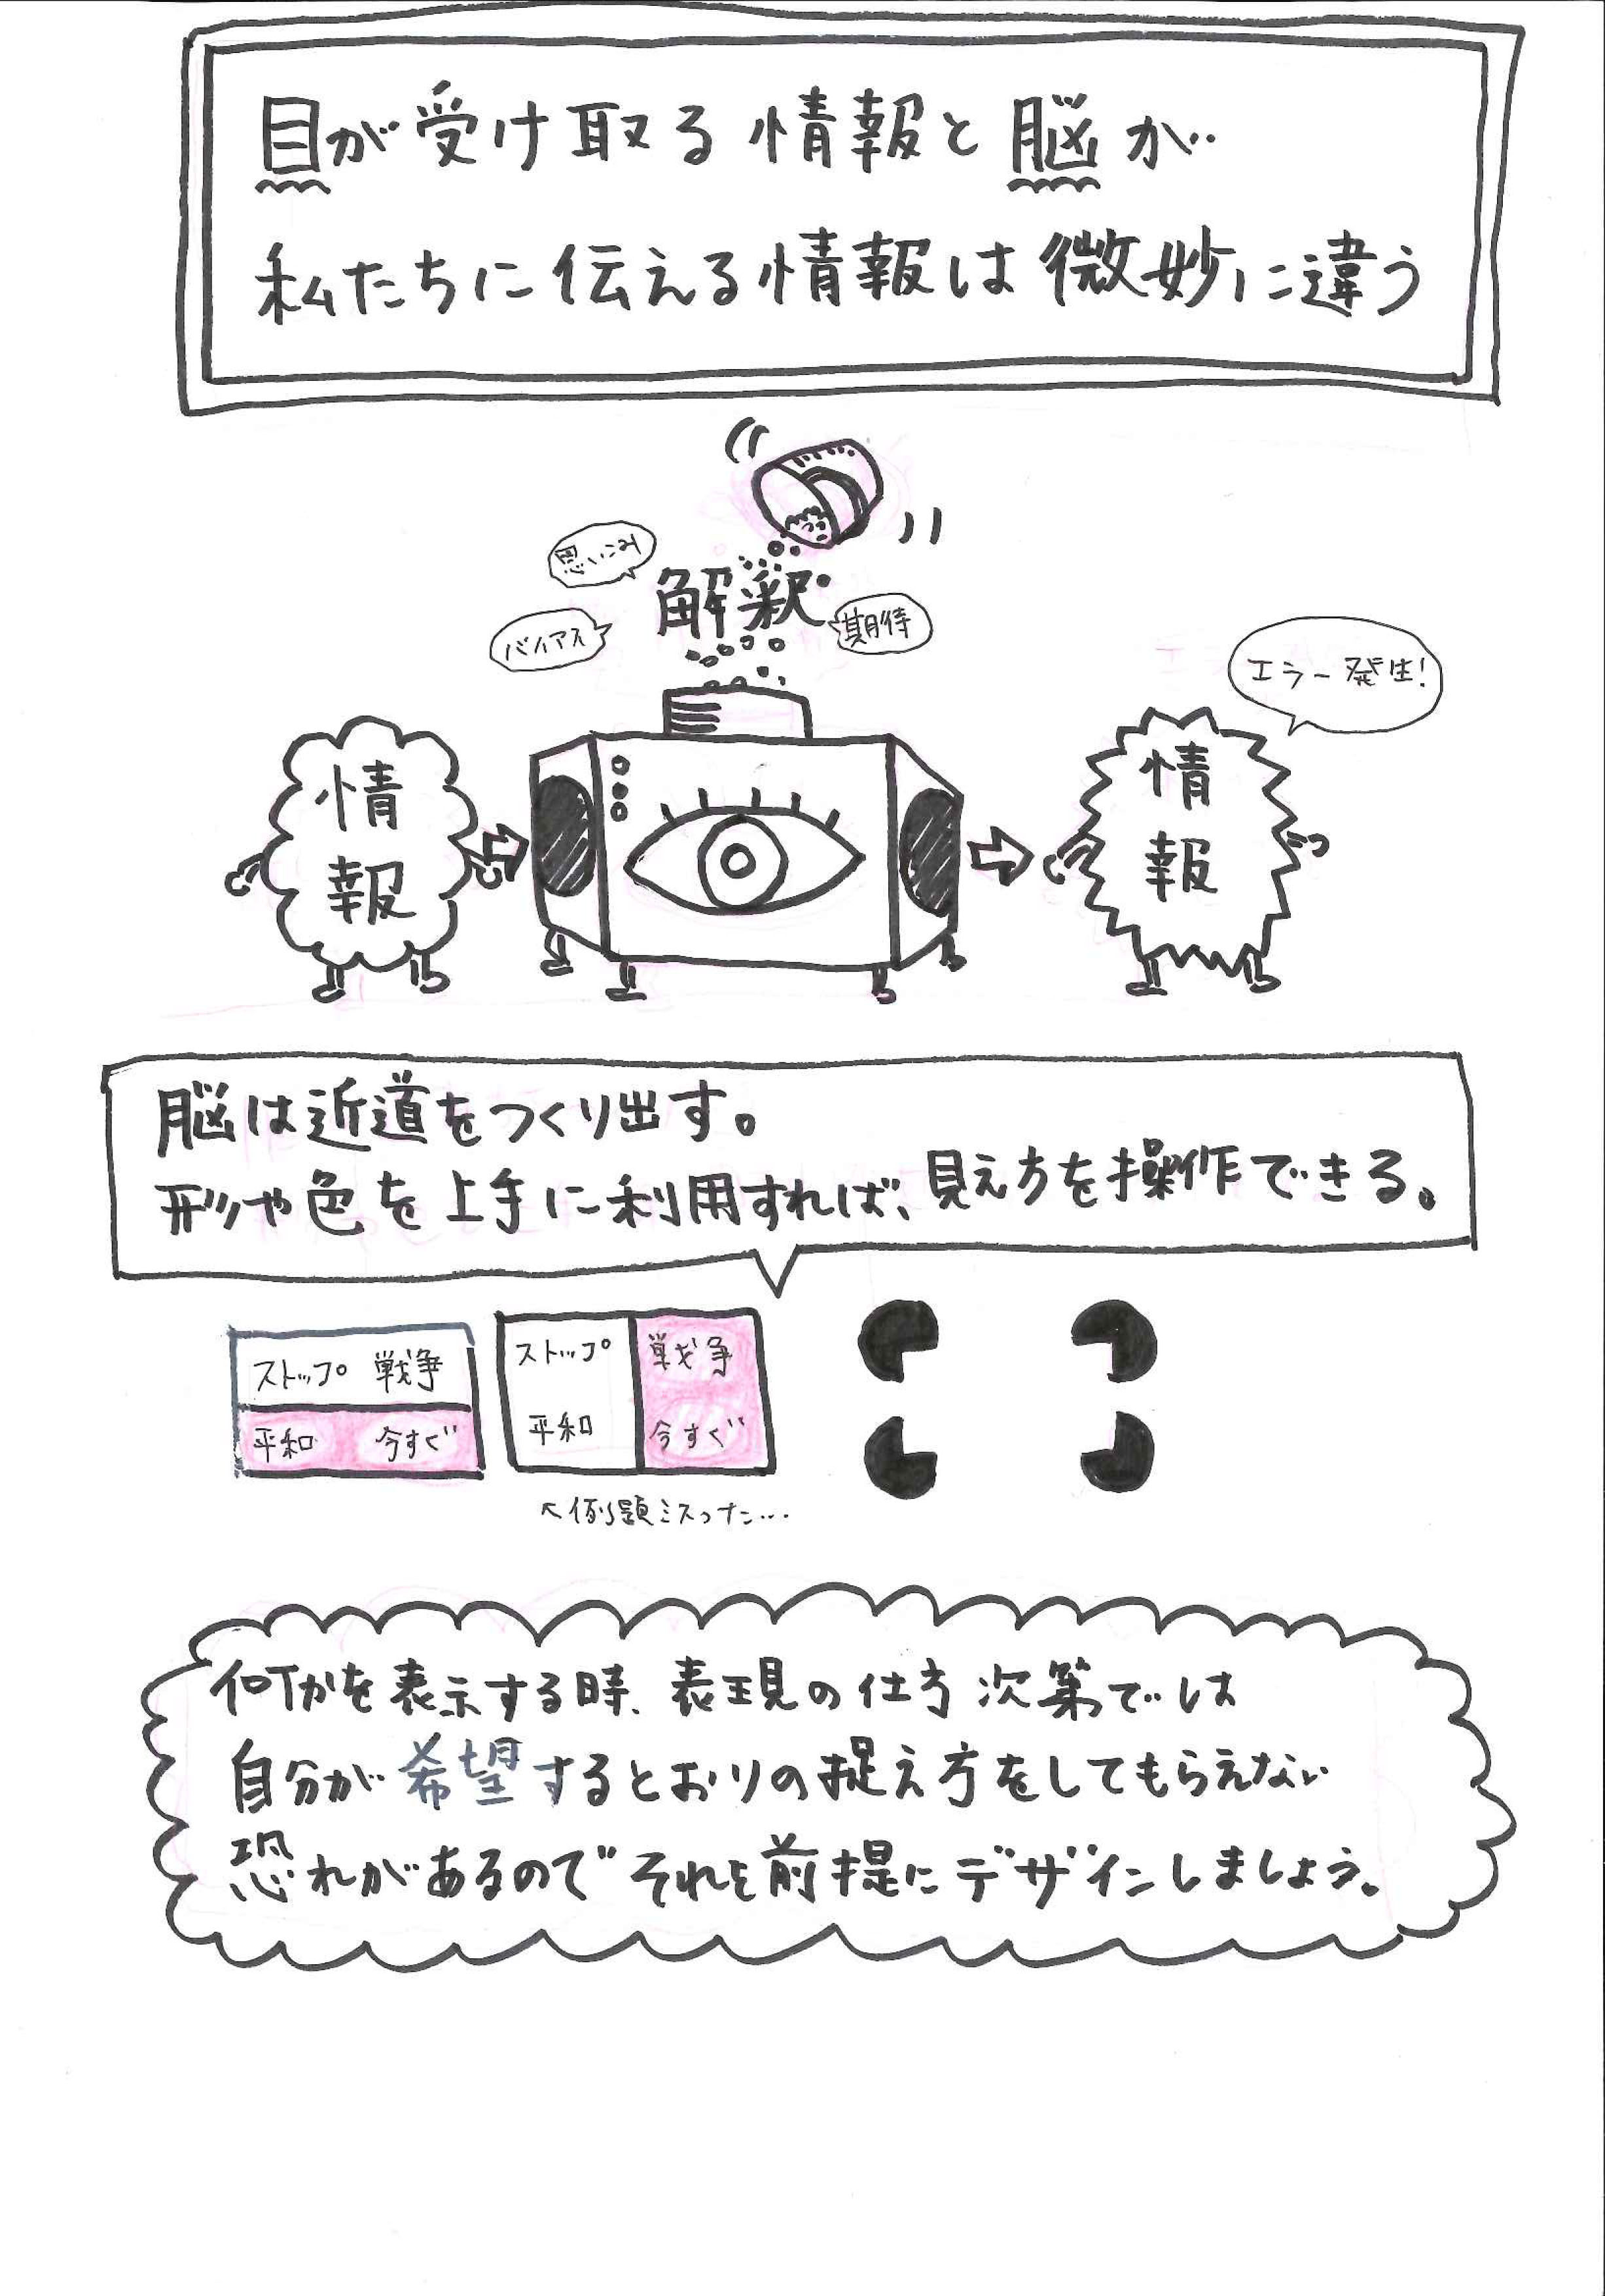 目が受け取る情報と脳が
私たちに伝える情報は微妙に違う
思いこみ
解釈
バイアス
期待
エラー発生!
情報
情報
脳は近道をつくり出す。
形や色を上手に利用すれば、見え方を操作できる。
ストップ 戦争
平和 今すぐ
ストップ 戦争
平和 今すぐ
↖例題ミスった…
何かを表示する時、表現の仕方次第では
自分が希望するとおりの捉え方をしてもらえない
恐れがあるのでそれを前提にデザインしましょう。